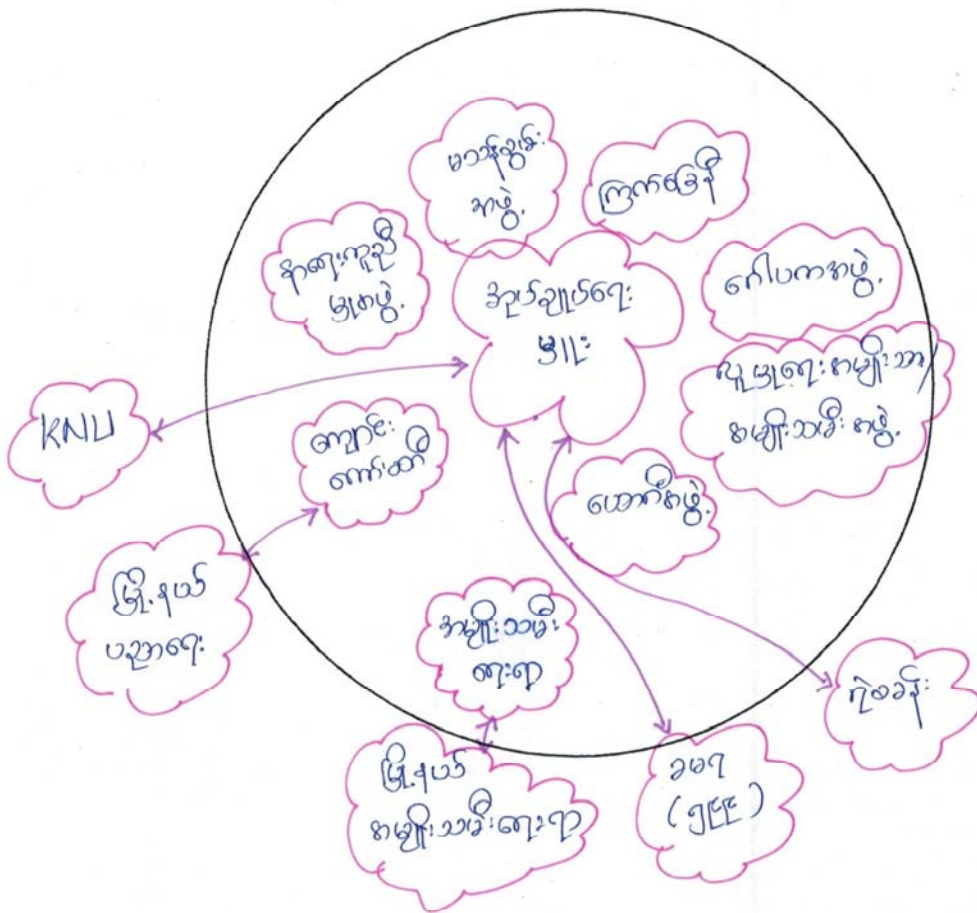 မသန်စွမ်း
အဖွဲ့
ကြက်ခြေနီ
နာရေးကူညီ
မှုအဖွဲ့
အုပ်ချုပ်ရေး
မှူး
ဂေါပကအဖွဲ့
လူမှုရေး အမျိုးသား/
အမျိုးသမီး အဖွဲ့
KNU
ကျောင်း
ကော်မတီ
ယောဂီအဖွဲ့
မြို့နယ်
ပညာရေး
အမျိုးသမီး
ရေးရာ
ရဲစခန်း
မြို့နယ်
အမျိုးသမီးရေးရာ
ခမရ